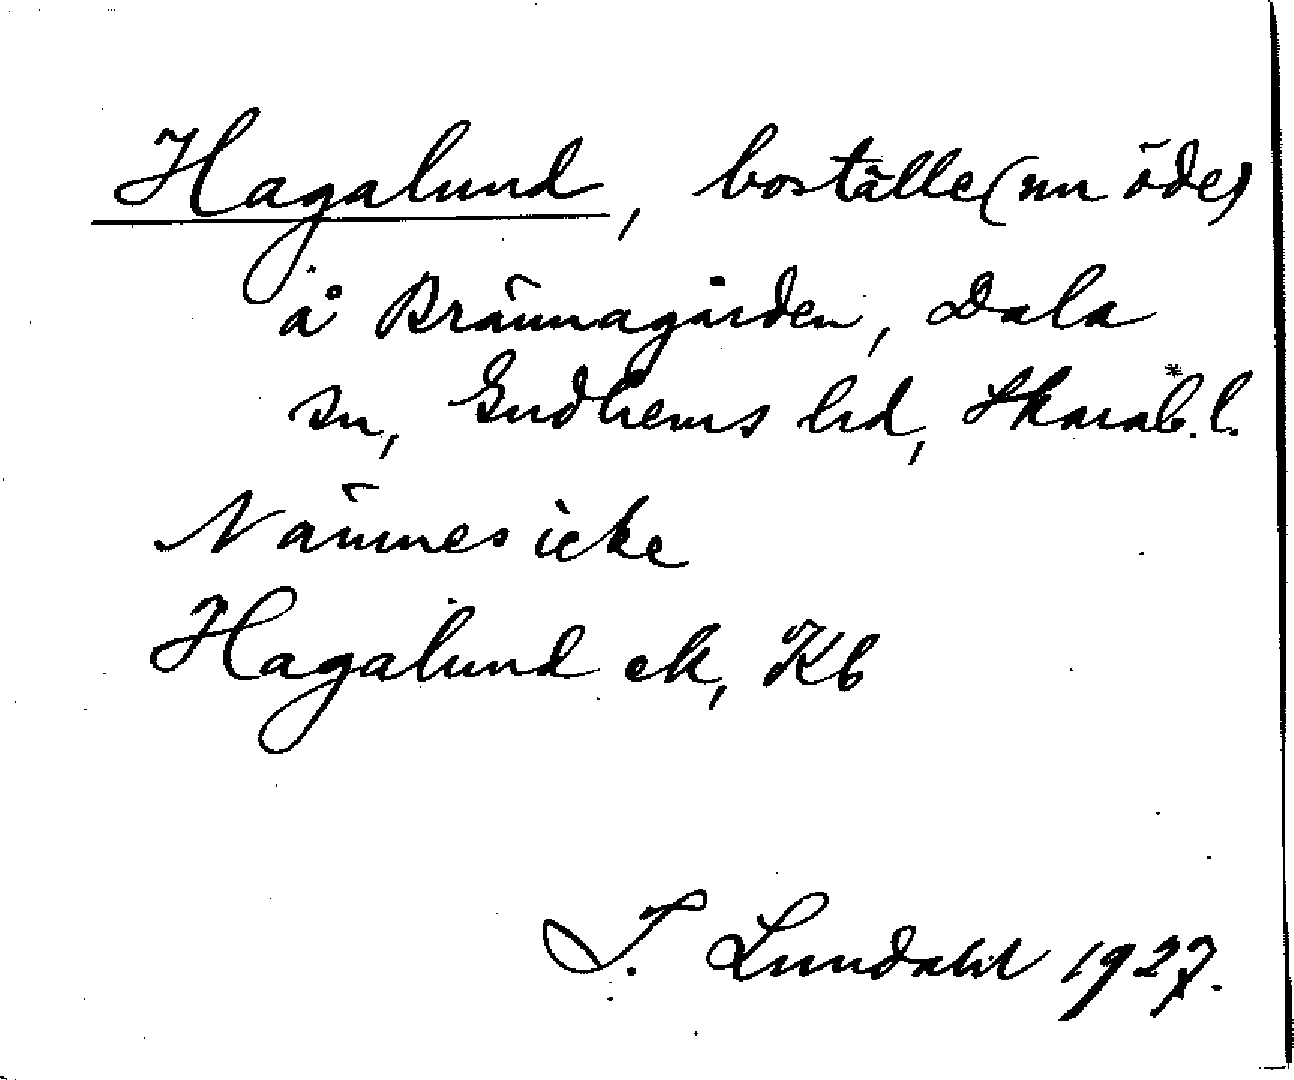 Hagalund, boställe (nu öde)
å Brännagården, Dala
sn, Gudhems hd, Skarab. l.
Nämnes icke
Hagalund ck, Kb
I. Lundahl 1927.